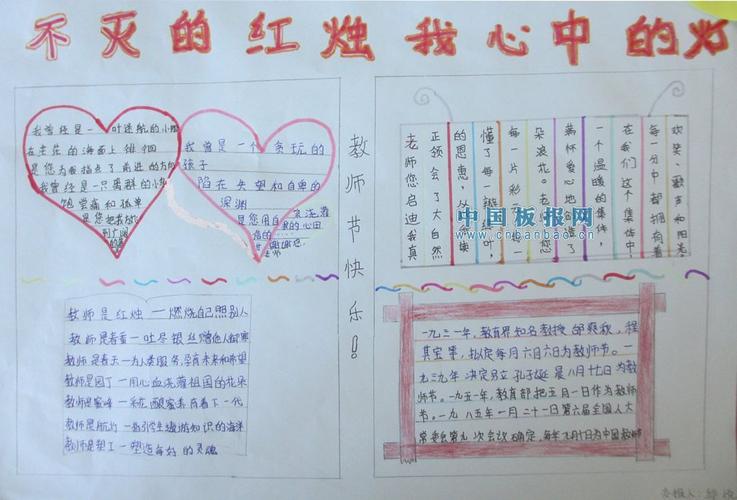 不灭的红烛 我心中的灯
我曾经是一叶迷航的小船
在茫茫的海面上徘徊
是您为我指点了前进的方向
我曾经是一只离群的小
饱尝痛和孤单
是您把我
到广阔
我曾是一个贪玩的
孩子
陷在失望和自卑的
深渊
是您用自
我的心田
谢谢您
老师
教师节快乐！
欢笑、歌声和阳光
每一分中都拥有着
在我们这个集体中
一个温暖的集体，
满怀爱心地创造了
朵浪花。老 您
每一片彩 一
懂了每一 叶，
的恩惠，从 读
正领会了大自然
老师您启迪我真
中国板报网
www.cnbanbao.cn
教师是红烛一燃烧自己照别人
教师是春蚕一吐尽银丝 他人御寒
教师是春天一为人类服务，孕育未来和希望
教师是园丁一用心血浇灌祖国的花朵
教师是蜜蜂一采花酿蜜养育着下一代
教师是航灯一指引学生遨游知识的海洋
教师是塑工一塑造每好的灵魂
一九三一年，教育界知名教授邰爽秋、程
其宝等，拟定每月六月六日为教师节。一
九三九年决定另立孔子诞辰八月廿日为教
师节。一九五一年，教育部把五月一日作为教师
节。一九八五年一月二十一日第六届全国人大
常委会第九次会议确定，每年九月十日为中国教师
办报人：